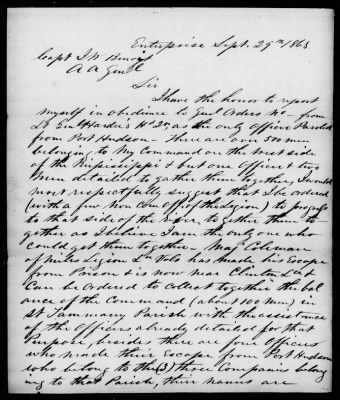 Enterprise Sept. 29th 1863
Capt J. W.
A A Genl
Sir
I have the honor to report
myself in obedience to Genl Orders No — from
Lt Genl Hardee's Hd Qrs, as the only Officer Paroled
from Port Hudson — There are over 500 men
belonging to My Command on the West side
of the Mississippi & but one Officer & two
Men detailed to gather them together, I would
most respectfully suggest that I be ordered
(with a few non Com Offs of the Legion) to proceed
to that side of the river, to gather them to-
gether as I believe I am the only one who
could get them together. Maj Coleman
of Miles Legion La Vols has made his Escape
from Prison & is now near Clinton La &
Can be Ordered to collect together the bal
ance of the Command (about 100 men) in
St Tammany Parish with the assistance
of the Officers already detailed for that
Purpose, besides there are four Officers
who made their Escape from Port Hudson
who belong to the (3) three Companies belong
ing to that Parish, their names are